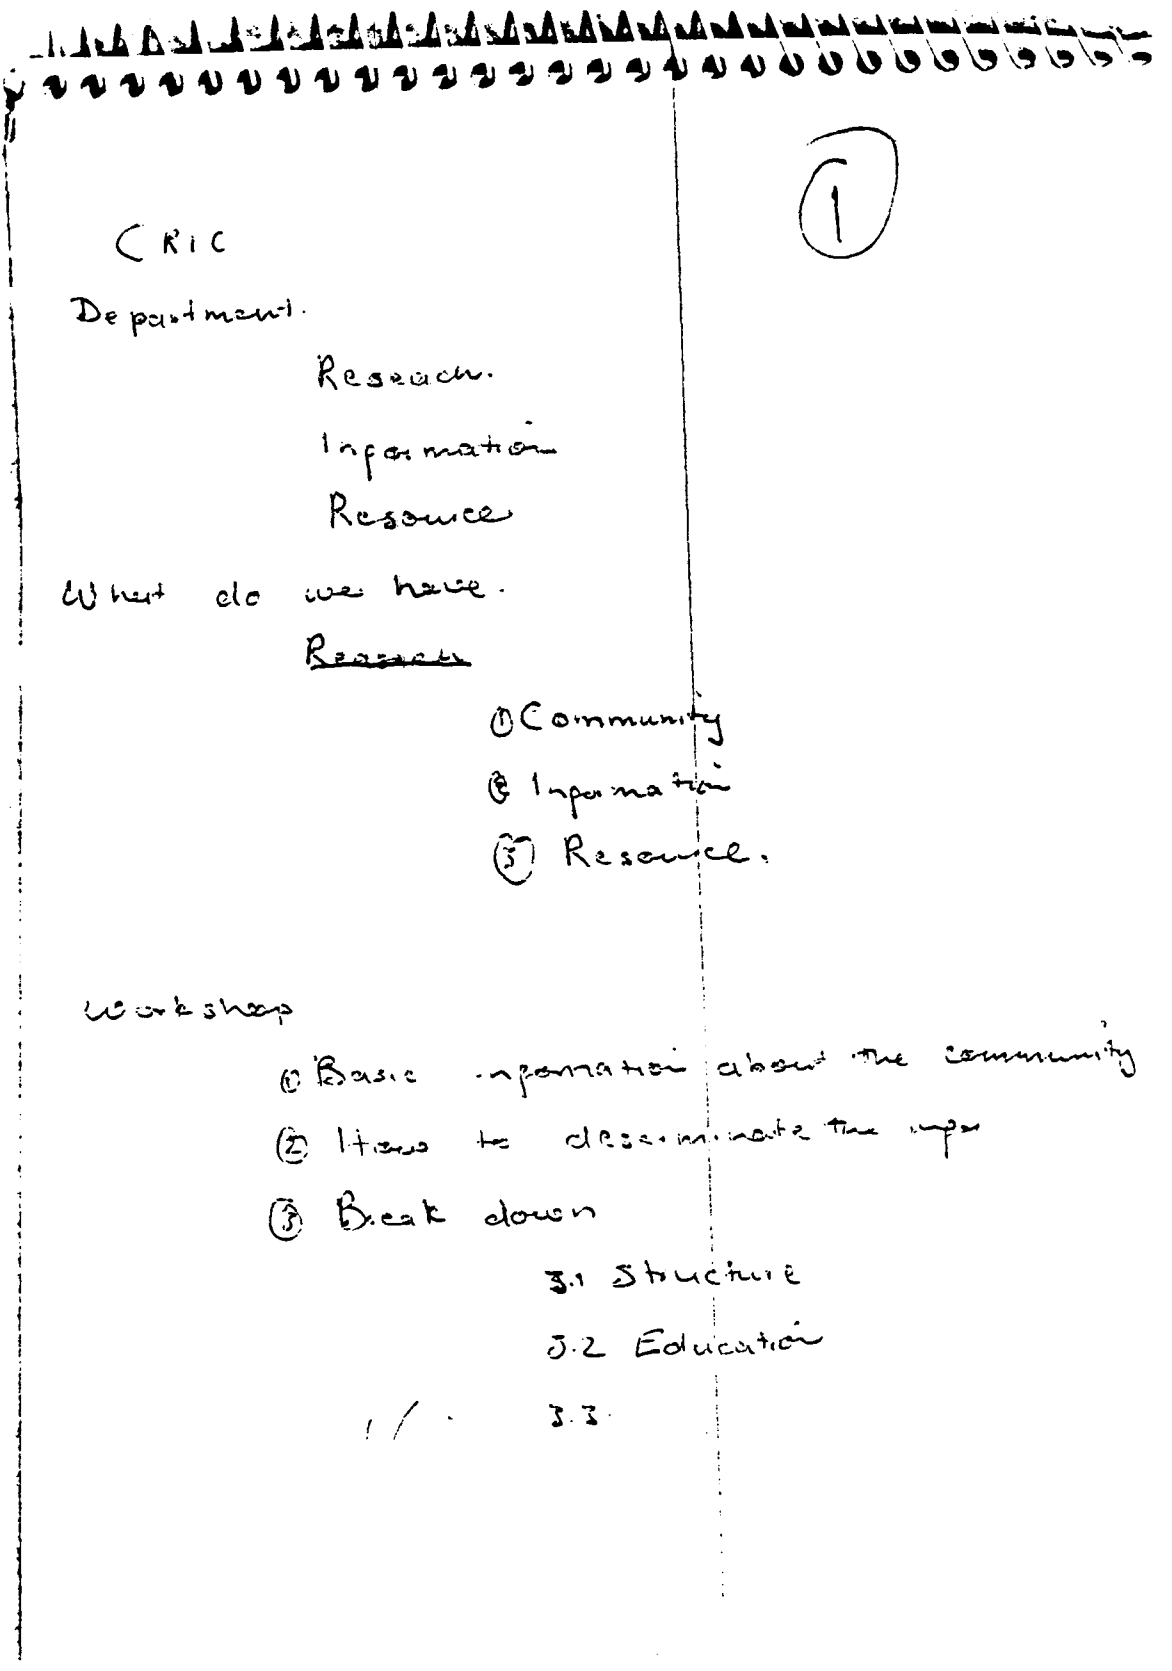 ①
CRIC
Department.
Reseach.
Information
Resource
What do we have.
① Community
② Information
③ Resource.
Workshop
① Basic information about the community
② How to descriminate the info
③ Break down
3.1 Structure
3.2 Education
3.3.